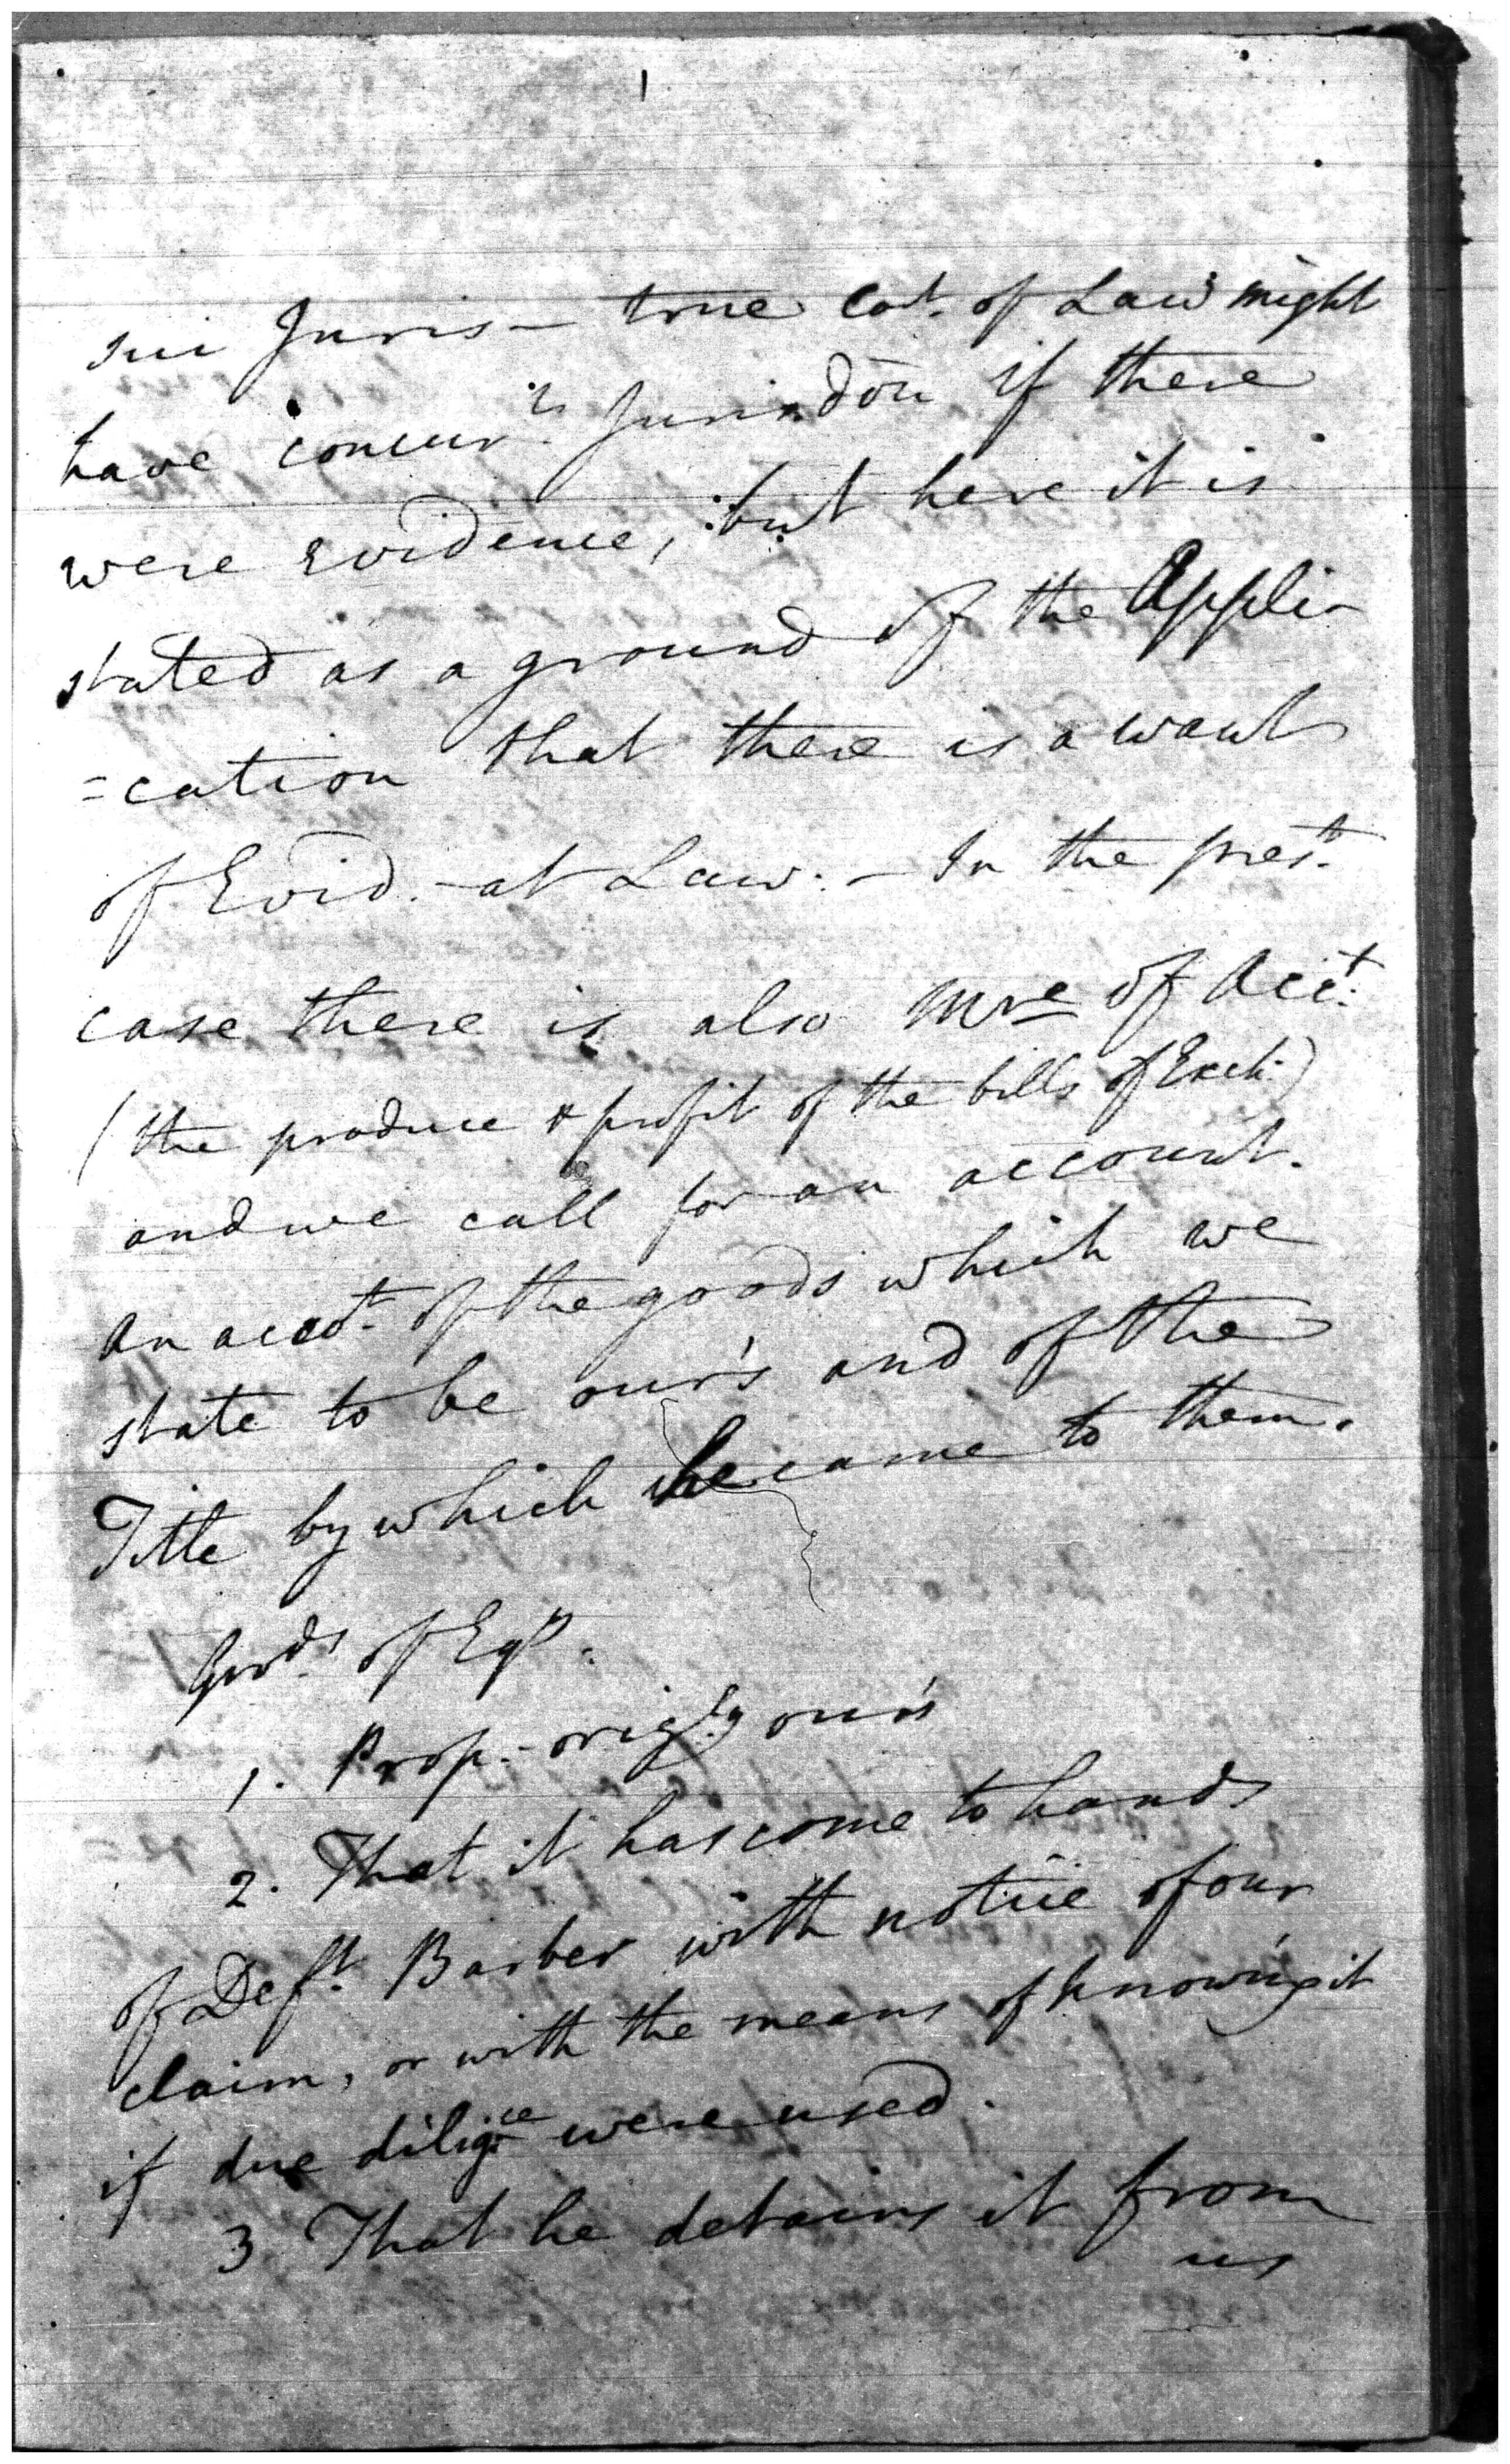 sui Juris — true Cot. of Law might
have concur.ts Jurisdon if there
were Evidence, but here it is
stated as a ground of the Appli-
=cation that there is a want
of Evid. at Law. — In the pres.t
case there is also Mre of Acct.
(the produce & profit of the bills of Exch.)
and we call for an account.
an acct. of the goods which we
state to be our's and of the
Title by which he came to them.
Grods. of Eqy.
1. Prop. - orig.ly our's
2. That it has come to hands
of Deft. Barber with notice of our
claim, or with the means of knowing it
if due dilig.ce were used.
3 That he detains it from
us